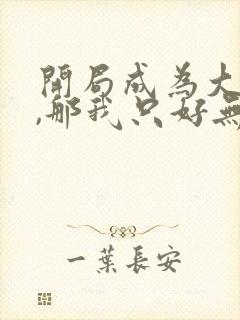 開局成為大
,那我只好無
一葉長安